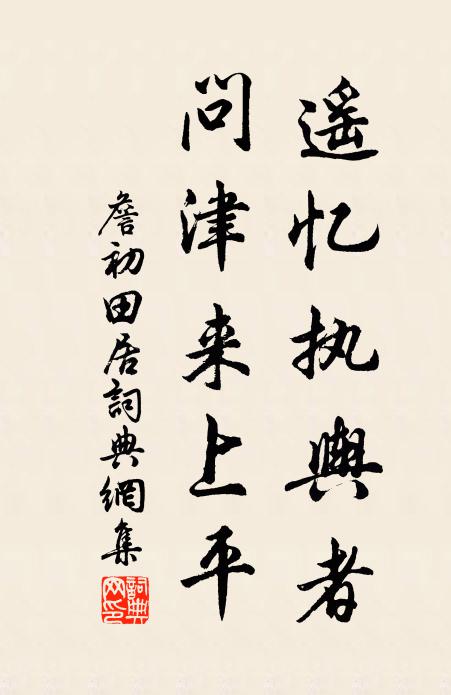 遥忆执舆者
问津来上平
詹初田居詞典網集
詞典
网印